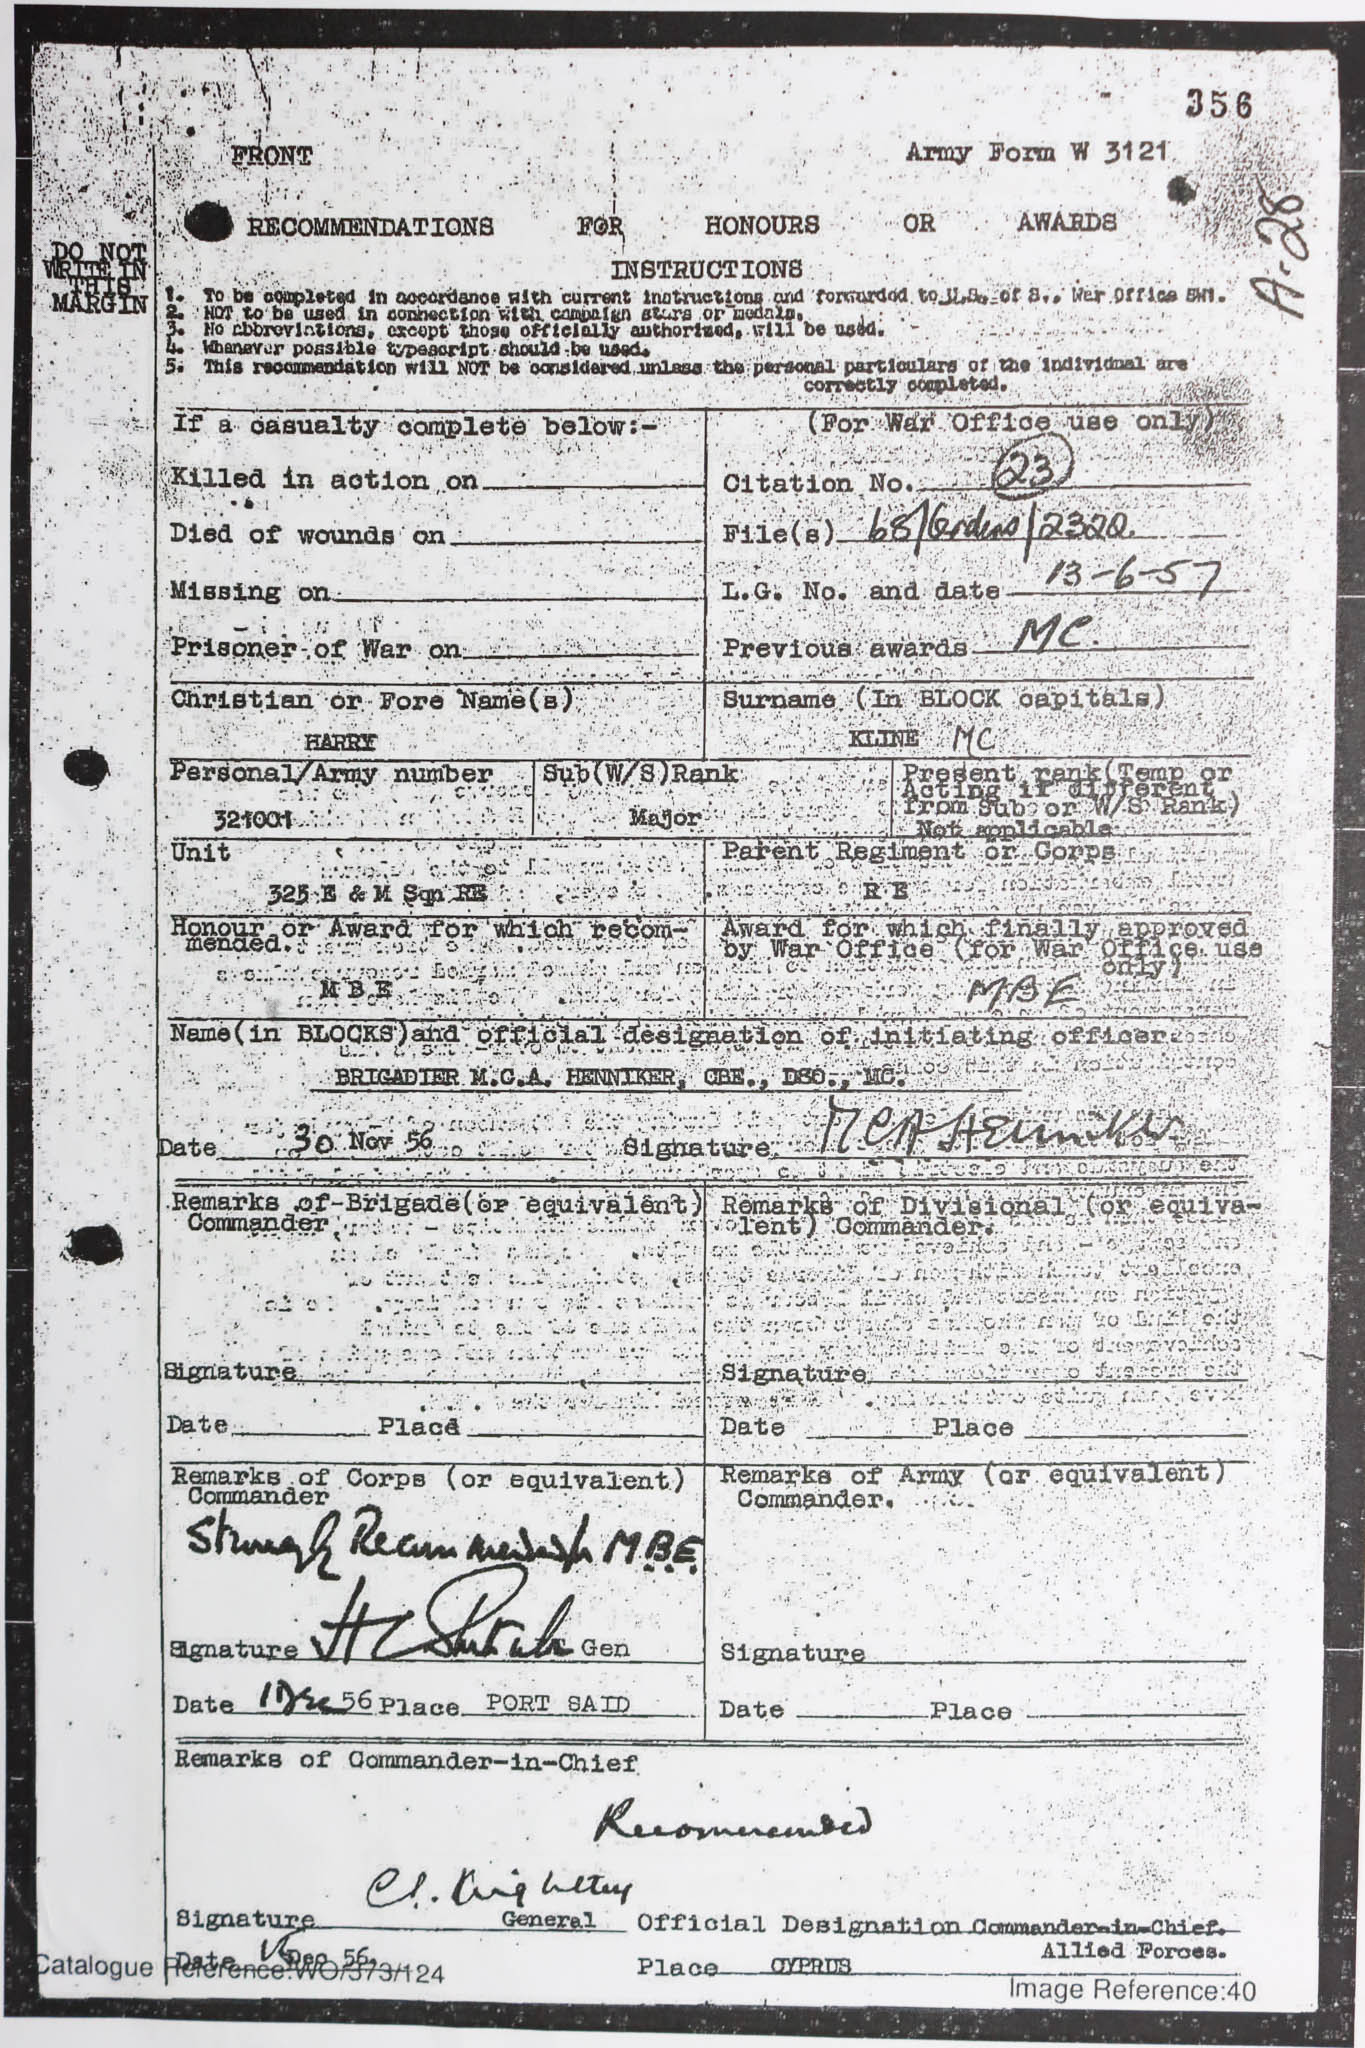 356
FRONT
Army Form W 3121
A-28
RECOMMENDATIONS FOR HONOURS OR AWARDS
DO NOT
WRITE IN
THIS
MARGIN
INSTRUCTIONS
1. To be completed in accordance with current instructions and forwarded to U.S. of S., War Office SW1.
2. NOT to be used in connection with campaign stars or medals.
3. No abbreviations, except those officially authorized, will be used.
4. Whenever possible typescript should be used.
5. This recommendation will NOT be considered unless the personal particulars of the individual are
correctly completed.
If a casualty complete below:-
(For War Office use only)
Killed in action on
Citation No. 23
Died of wounds on
File(s) 68/Gordons/2320.
Missing on
L.G. No. and date 13-6-57
Prisoner of War on
Previous awards MC.
Christian or Fore Name(s)
Surname (In BLOCK capitals)
HARRY
KLINE MC
Personal/Army number
Sub(W/S)Rank
Present rank(Temp or
Acting if different
from Sub or W/S Rank)
321001
Major
Not applicable
Unit
Parent Regiment or Corps
325 E & M Sqn RE
R E
Honour or Award for which recom-
mended.
Award for which finally approved
by War Office (for War Office use
only)
M B E
MBE
Name(in BLOCKS)and official designation of initiating officer
BRIGADIER M.C.A. HENNIKER, CBE., DSO., MC.
Date 30 Nov 56
Signature MCA Henniker
Remarks of Brigade(or equivalent)
Commander
Remarks of Divisional (or equiva-
lent) Commander.
Signature
Signature
Date Place
Date Place
Remarks of Corps (or equivalent)
Commander
Remarks of Army (or equivalent)
Commander.
Strongly Recommended MBE
Signature Gen
Signature
Date 1 Dec 56 Place PORT SAID
Date Place
Remarks of Commander-in-Chief
Recommended
C.F. Keightley
Signature General Official Designation Commander-in-Chief.
Allied Forces.
Date Dec 56. Place CYPRUS
Catalogue Reference:WO/373/124
Image Reference:40